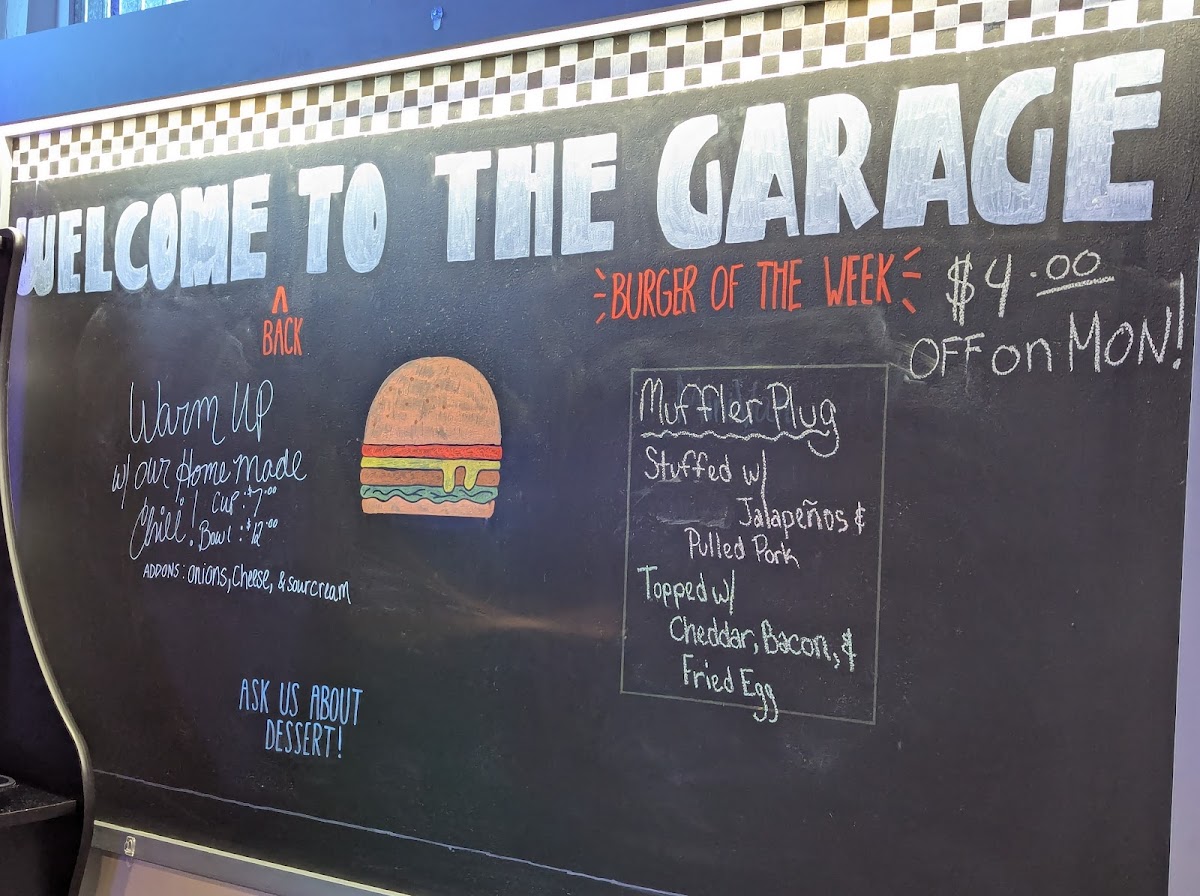 WELCOME TO THE GARAGE
^
BACK
Warm UP
w/ our Home made
Chili! Cup: $7.00
Bowl: $12.00
ADDONS: onions, cheese, & sourcream
ASK US ABOUT
DESSERT!
BURGER OF THE WEEK
$4.00
OFF on MON!
Muffler Plug
Stuffed w/
Jalapeños &
Pulled Pork
Topped w/
Cheddar, Bacon, &
Fried Egg